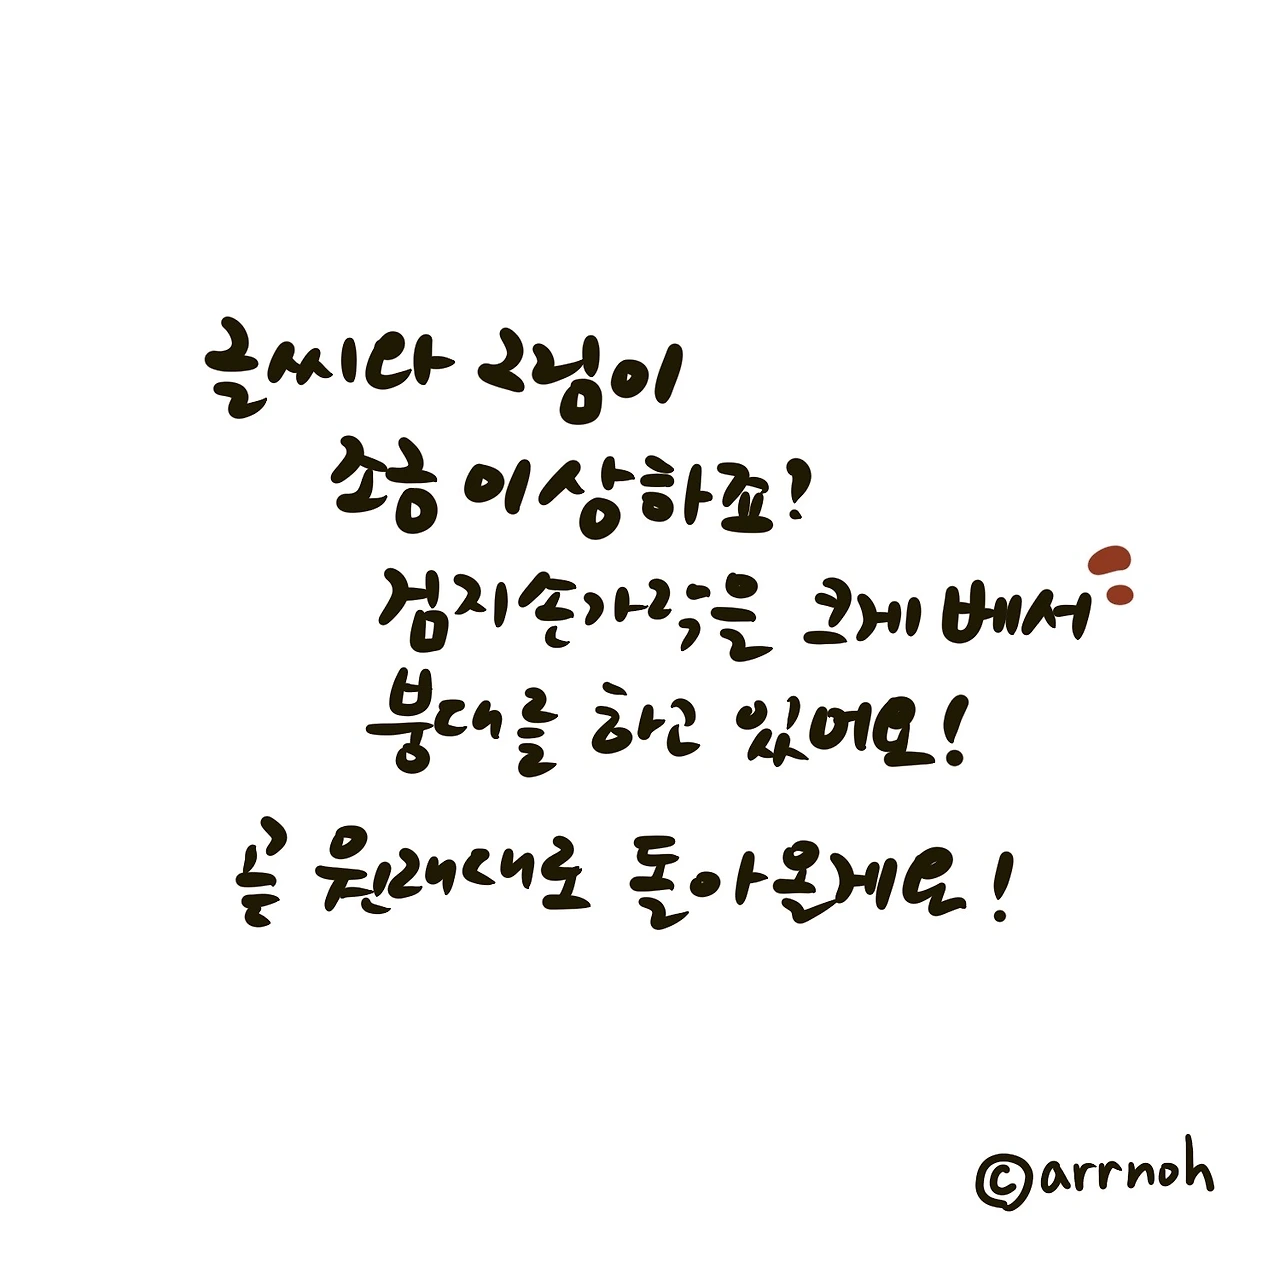 글씨와 그림이
조금 이상하죠?
검지손가락을 크게 베서
붕대를 하고 있어요!
곧 원래대로 돌아올게요!
©arrnoh